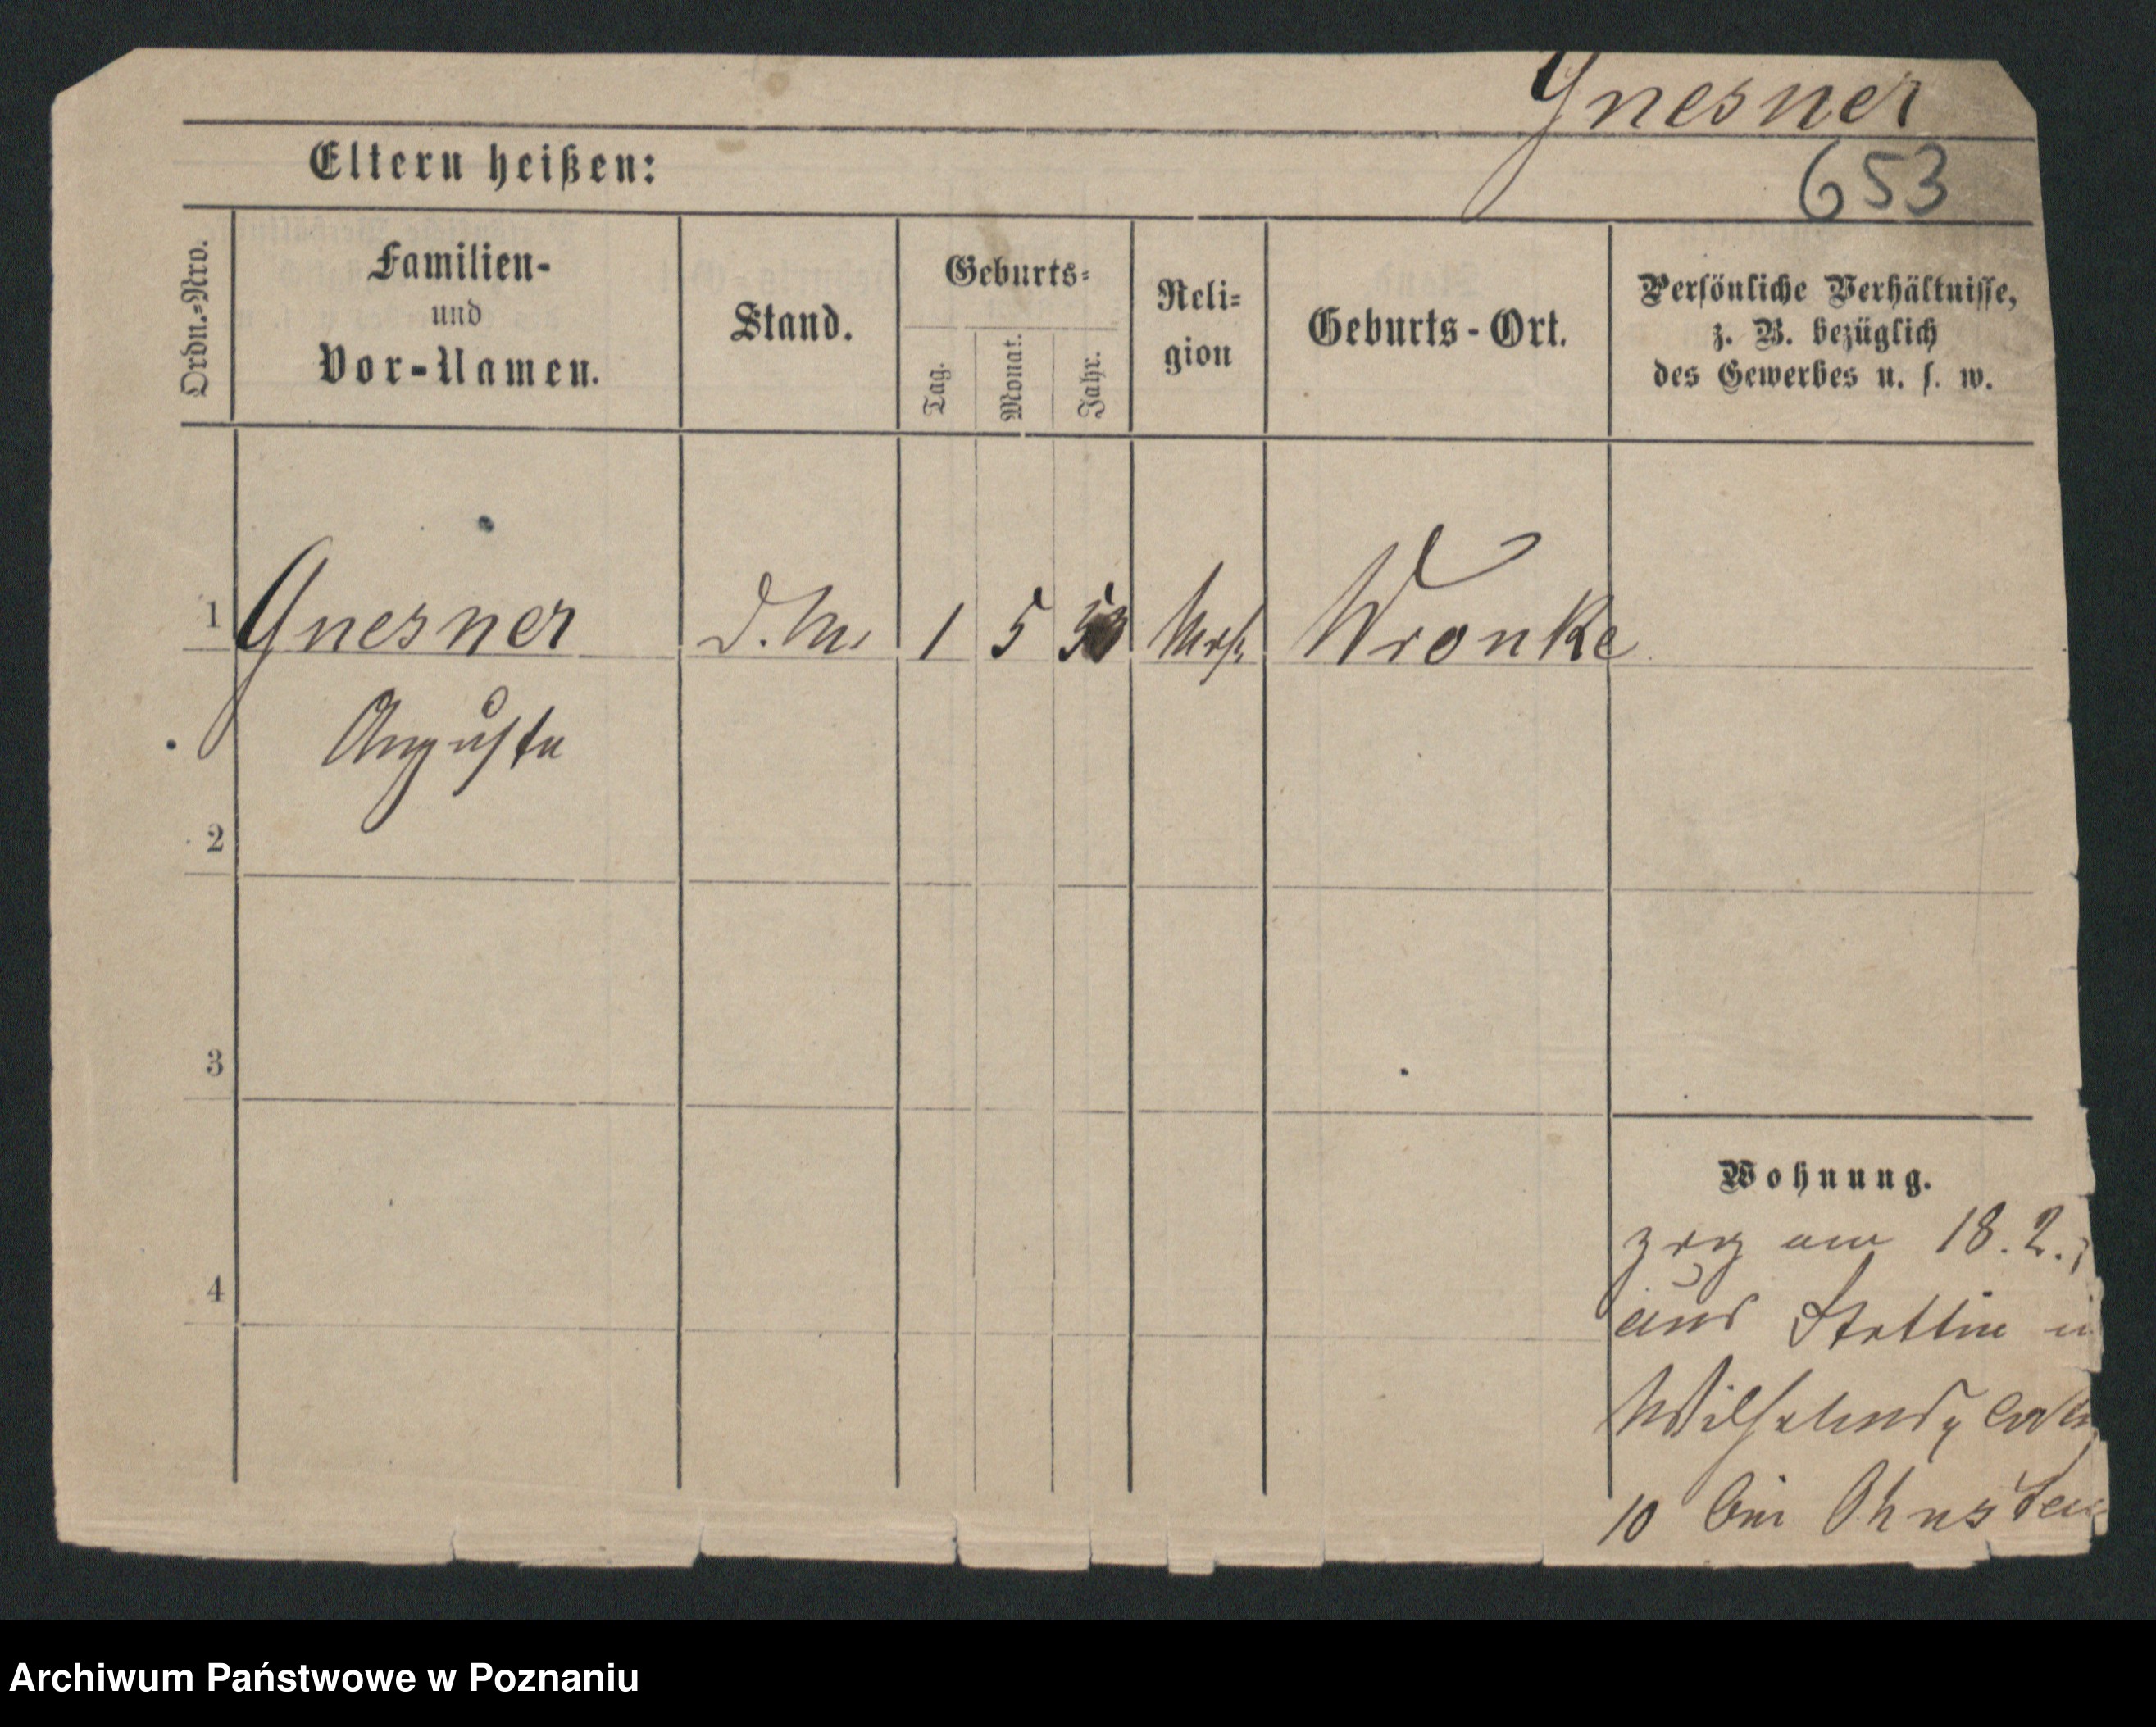 Gnesner
653
Eltern heißen:
Ordn.=Nro.
Familien-
und
Vor-Namen.
Stand.
Geburts=
Tag.
Monat.
Jahr.
Reli=
gion
Geburts-Ort.
Persönliche Verhältnisse,
z. B. bezüglich
des Gewerbes u. s. w.
1 Gnesner 1 5 Wronke
Auguste
2
3
4
Wohnung.
zog am 18.2.
aus Stettin
Wilhelmspl
10 bei
Archiwum Państwowe w Poznaniu